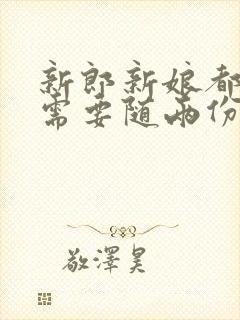 新郎新娘都
需要随两份
敬泽昊